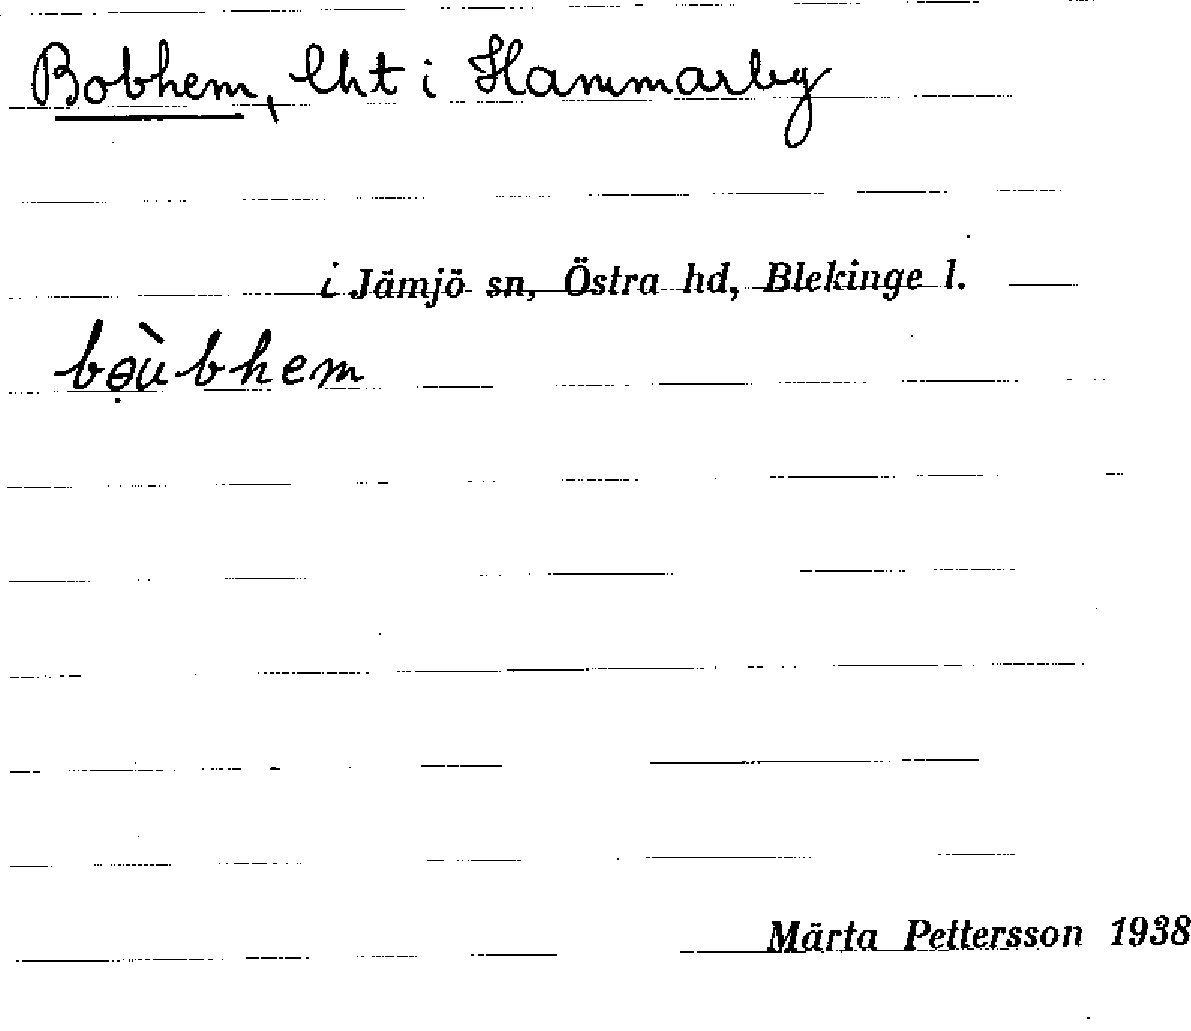 Bobhem, lht i Hammarby
i Jämjö sn, Östra hd, Blekinge l.
bə̣ùbhem
Märta Pettersson 1938